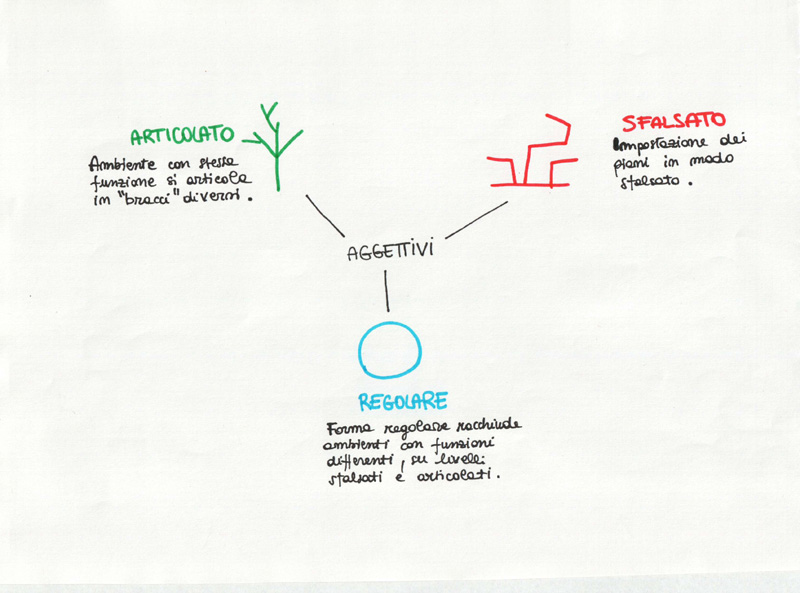 ARTICOLATO
Ambiente con stessa
funzione si articola
in "bracci" diversi.
SFALSATO
Impostazione dei
piani in modo
sfalsato.
AGGETTIVI
REGOLARE
Forma regolare racchiude
ambienti con funzioni
differenti, su livelli
sfalsati e articolati.